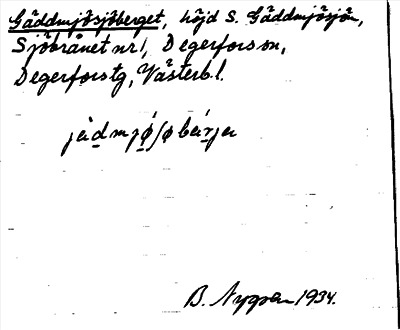 Gäddmjösjöberget, höjd S. Gäddmjösjön,
Sjöbrånet nr 1, Degerfors sn,
Degerfors tg, Västerb. l.
B. Nygren 1934.